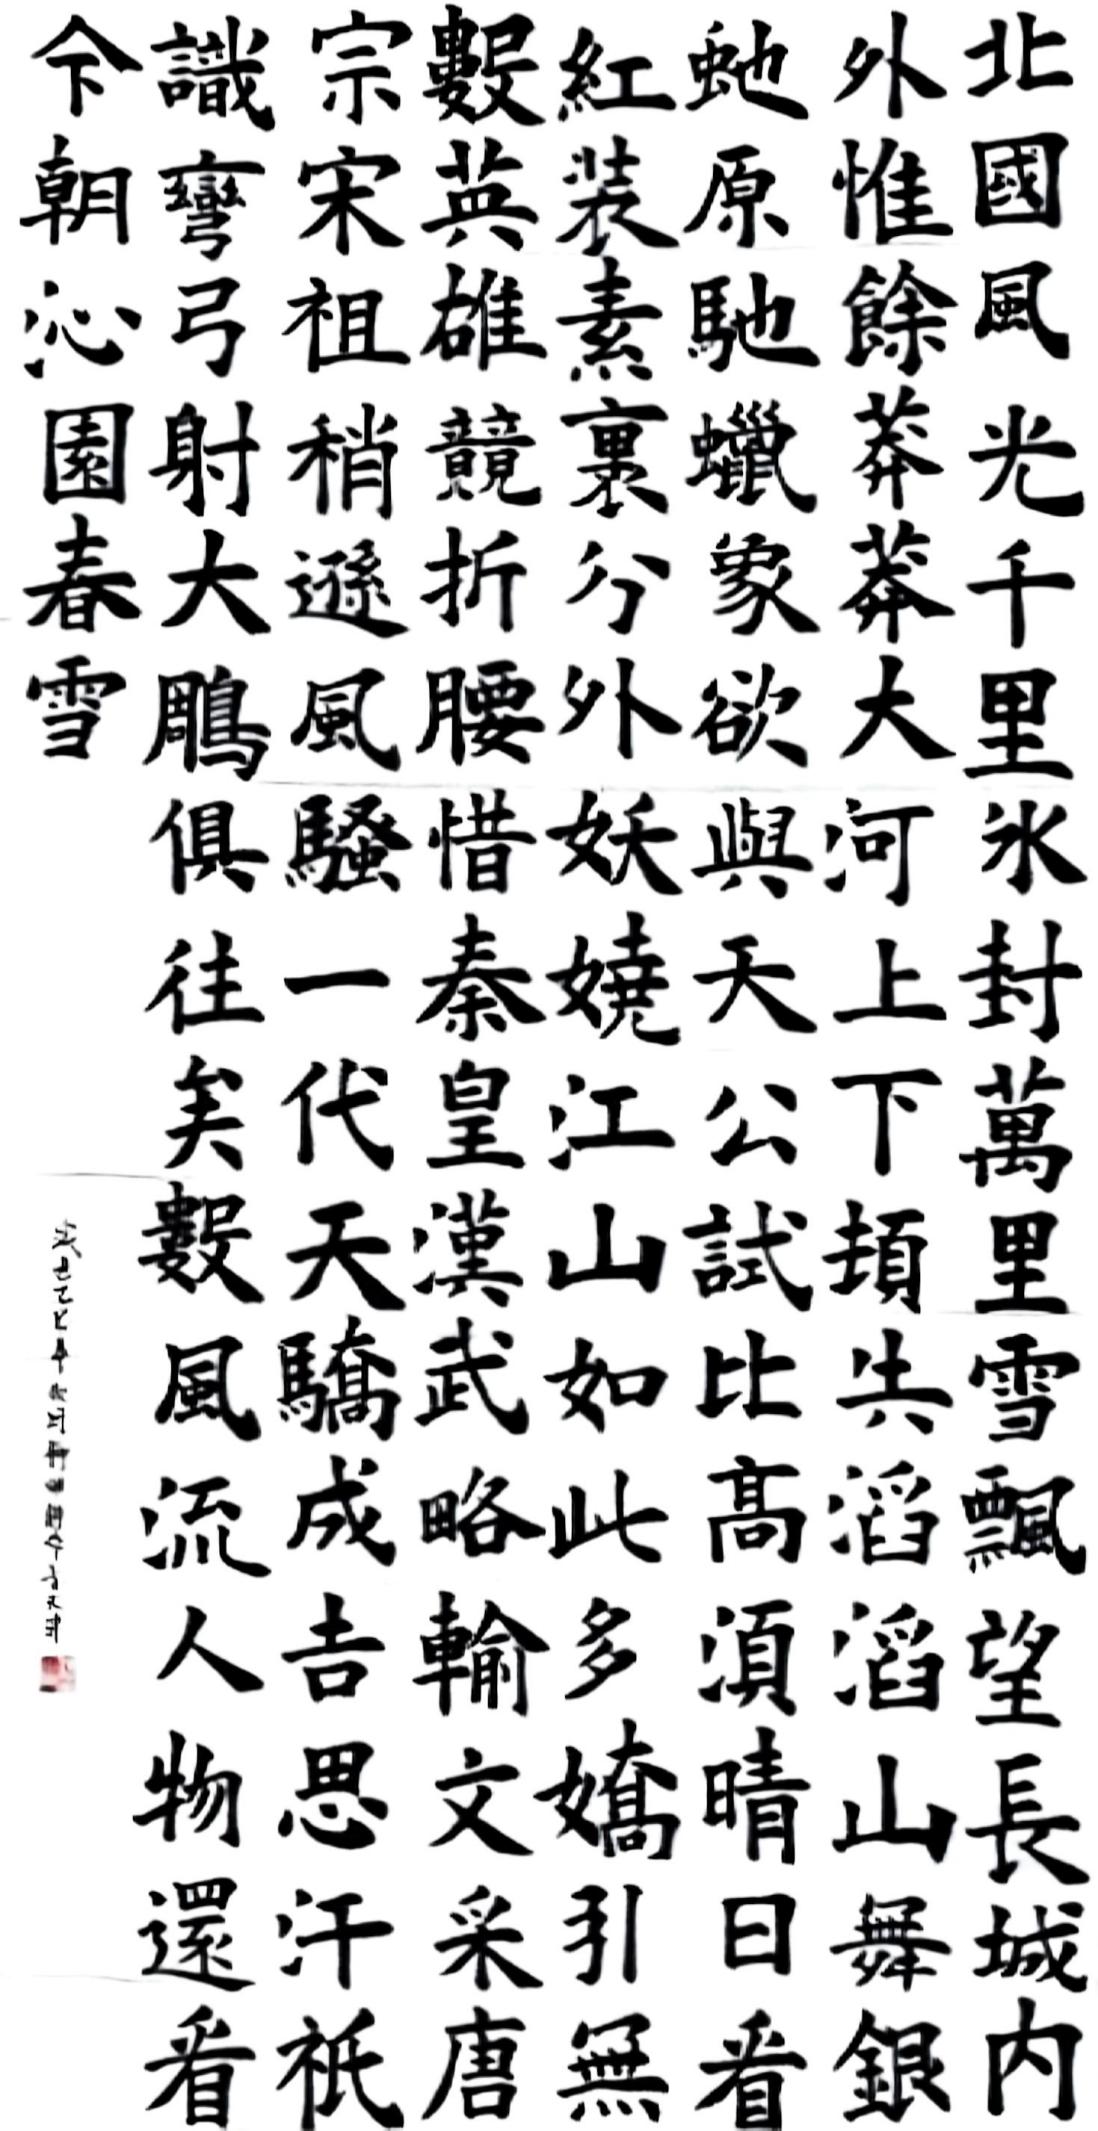 北國風光千里氷封萬里雪飄望長城内
外惟餘莽莽大河上下頓失滔滔山舞銀
虵原馳蠟象欲與天公試比高須晴日看
紅裝素裹分外妖嬈江山如此多嬌引無
數英雄競折腰惜秦皇漢武略輸文采唐
宗宋祖稍遜風騷一代天驕成吉思汗祇
識彎弓射大鵰俱往矣數風流人物還看
今朝沁園春雪